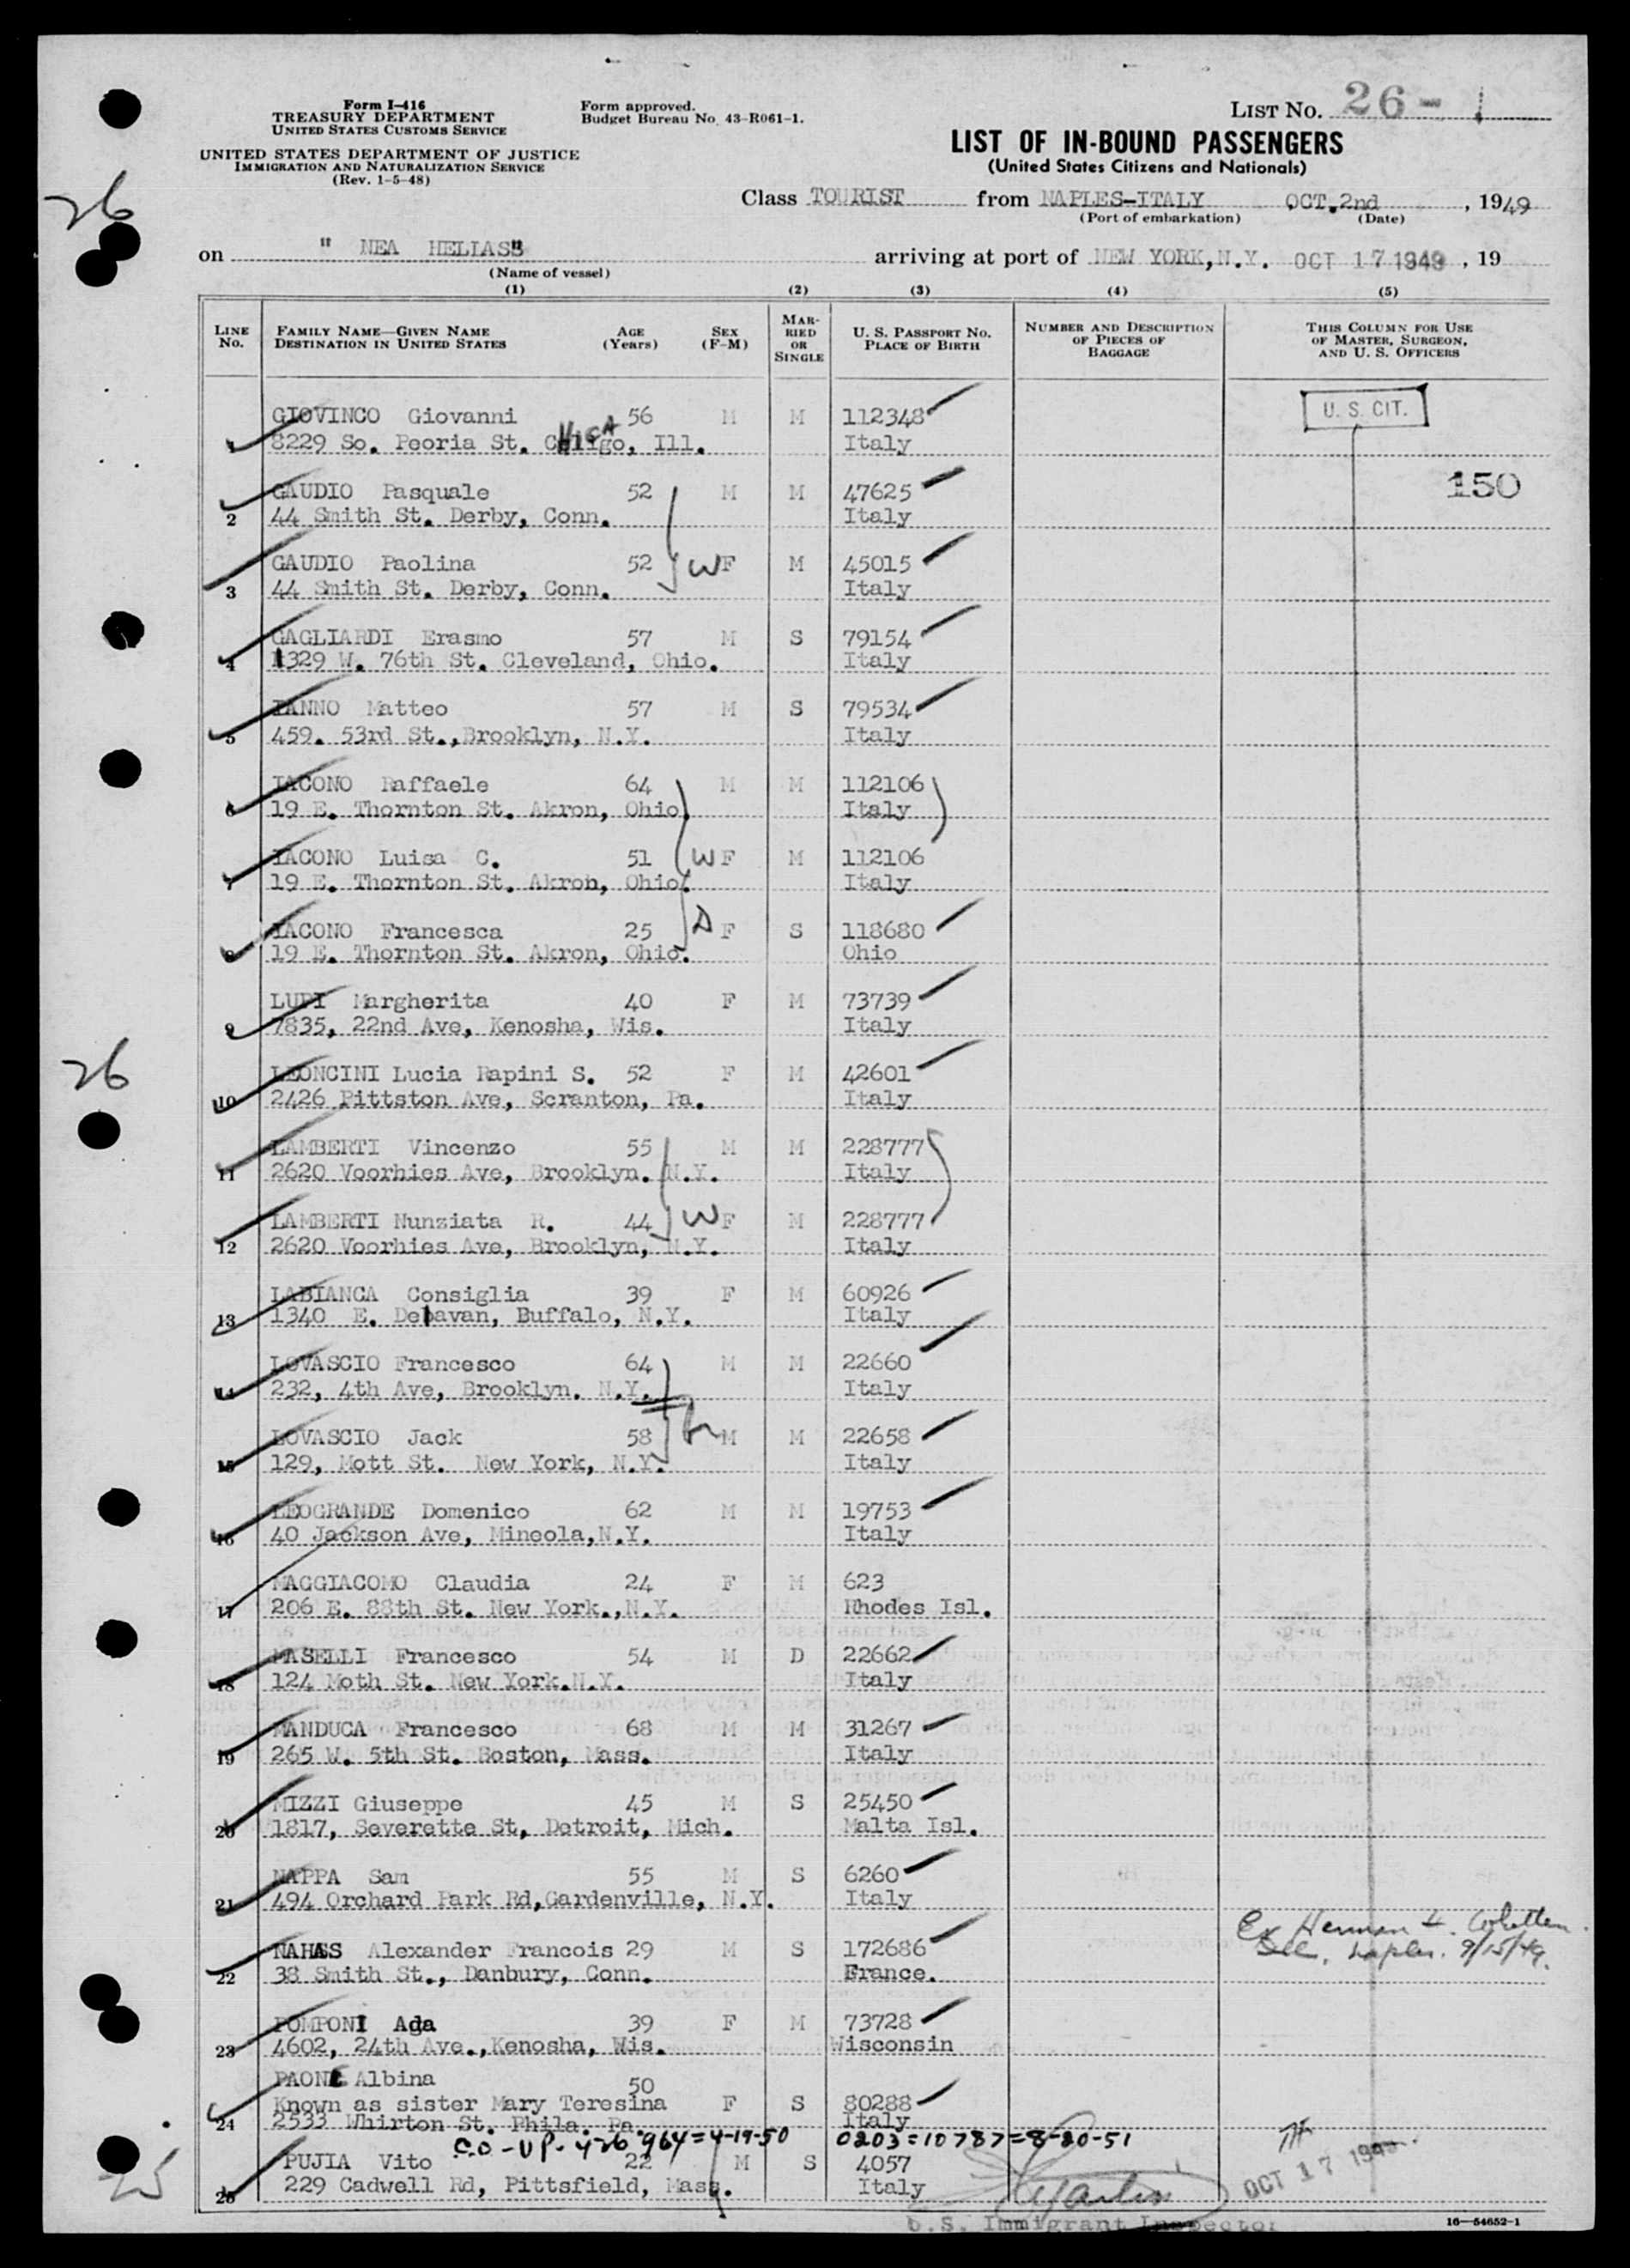 Form I-416
TREASURY DEPARTMENT
UNITED STATES CUSTOMS SERVICE
UNITED STATES DEPARTMENT OF JUSTICE
IMMIGRATION AND NATURALIZATION SERVICE
(Rev. 1-5-48)
Form approved.
Budget Bureau No. 43-R061-1.
LIST NO. 26-1
LIST OF IN-BOUND PASSENGERS
(United States Citizens and Nationals)
26
Class TOURIST from NAPLES-ITALY OCT.2nd, 1949
(Port of embarkation) (Date)
on " NEA HELIAS" arriving at port of NEW YORK,N.Y. OCT 17 1949, 19
(Name of vessel)
(1) (2) (3) (4) (5)
LINE No. FAMILY NAME—GIVEN NAME DESTINATION IN UNITED STATES AGE (Years) SEX (F-M) MARRIED OR SINGLE U. S. PASSPORT NO. PLACE OF BIRTH NUMBER AND DESCRIPTION OF PIECES OF BAGGAGE THIS COLUMN FOR USE OF MASTER, SURGEON, AND U. S. OFFICERS
GIOVINCO Giovanni 56 M M 112348 U. S. CIT.
1 8229 So. Peoria St. Chicago, Ill. Italy
GAUDIO Pasquale 52 M M 47625 150
2 44 Smith St. Derby, Conn. Italy
GAUDIO Paolina 52 W F M 45015
3 44 Smith St. Derby, Conn. Italy
GAGLIARDI Erasmo 57 M S 79154
4 1329 W. 76th St. Cleveland, Ohio. Italy
IANNO Matteo 57 M S 79534
5 459. 53rd St.,Brooklyn, N.Y. Italy
IACONO Raffaele 64 M M 112106
6 19 E. Thornton St. Akron, Ohio. Italy
IACONO Luisa C. 51 W F M 112106
7 19 E. Thornton St. Akron, Ohio. Italy
IACONO Francesca 25 D F S 118680
8 19 E. Thornton St. Akron, Ohio. Ohio
LUPI Margherita 40 F M 73739
9 7835, 22nd Ave, Kenosha, Wis. Italy
26
LEONCINI Lucia Rapini S. 52 F M 42601
10 2426 Pittston Ave, Scranton, Pa. Italy
LAMBERTI Vincenzo 55 M M 228777
11 2620 Voorhies Ave, Brooklyn. N.Y. Italy
LAMBERTI Nunziata R. 44 W F M 228777
12 2620 Voorhies Ave, Brooklyn, N.Y. Italy
LABIANCA Consiglia 39 F M 60926
13 1340 E. Delavan, Buffalo, N.Y. Italy
LOVASCIO Francesco 64 M M 22660
14 232, 4th Ave, Brooklyn. N.Y. Italy
LOVASCIO Jack 58 M M 22658
15 129, Mott St. New York, N.Y. Italy
LEOGRANDE Domenico 62 M M 19753
16 40 Jackson Ave, Mineola,N.Y. Italy
MAGGIACOMO Claudia 24 F M 623
17 206 E. 88th St. New York.,N.Y. Rhodes Isl.
MASELLI Francesco 54 M D 22662
18 124 Moth St. New York.N.Y. Italy
MANDUCA Francesco 68 M M 31267
19 265 W. 5th St. Boston, Mass. Italy
MIZZI Giuseppe 45 M S 25450
20 1817, Severette St, Detroit, Mich. Malta Isl.
NAPPA Sam 55 M S 6260
21 494 Orchard Park Rd,Gardenville, N.Y. Italy
NAHAS Alexander Francois 29 M S 172686 Ex Herman
22 38 Smith St., Danbury, Conn. France. Naples. 9/15/49.
POMPONI Ada 39 F M 73728
23 4602, 24th Ave.,Kenosha, Wis. Wisconsin
PAONE Albina 50
Known as sister Mary Teresina F S 80288
24 2533 Whirton St. Phila. Pa. Italy
C.O-VP-426 964=4-19-50 0203=10787=8-20-51
PUJIA Vito 22 M S 4057
25 229 Cadwell Rd, Pittsfield, Mass. Italy
OCT 17 1949
25
U.S. Immigrant Inspector
16—54652-1